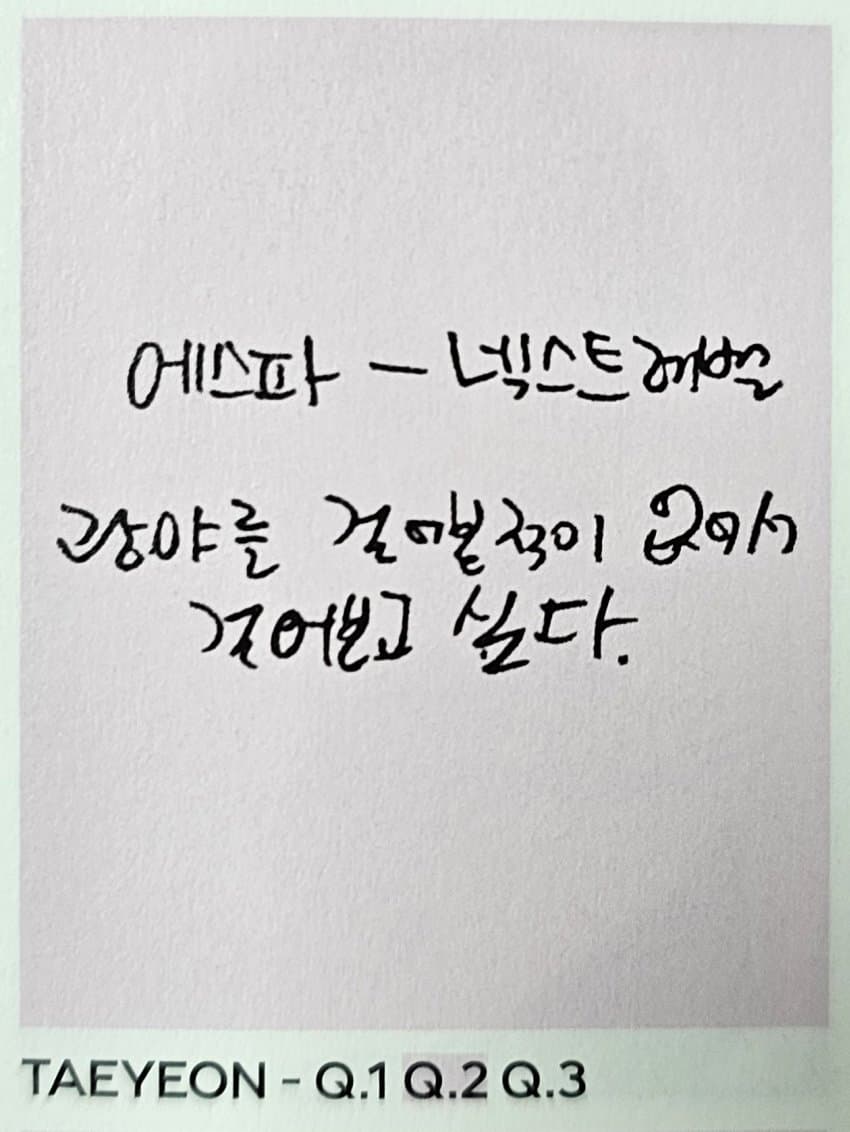 에스파 - 넥스트 레벨
광야를 걸어본 적이 없어서
걸어보고 싶다.
TAEYEON - Q.1 Q.2 Q.3